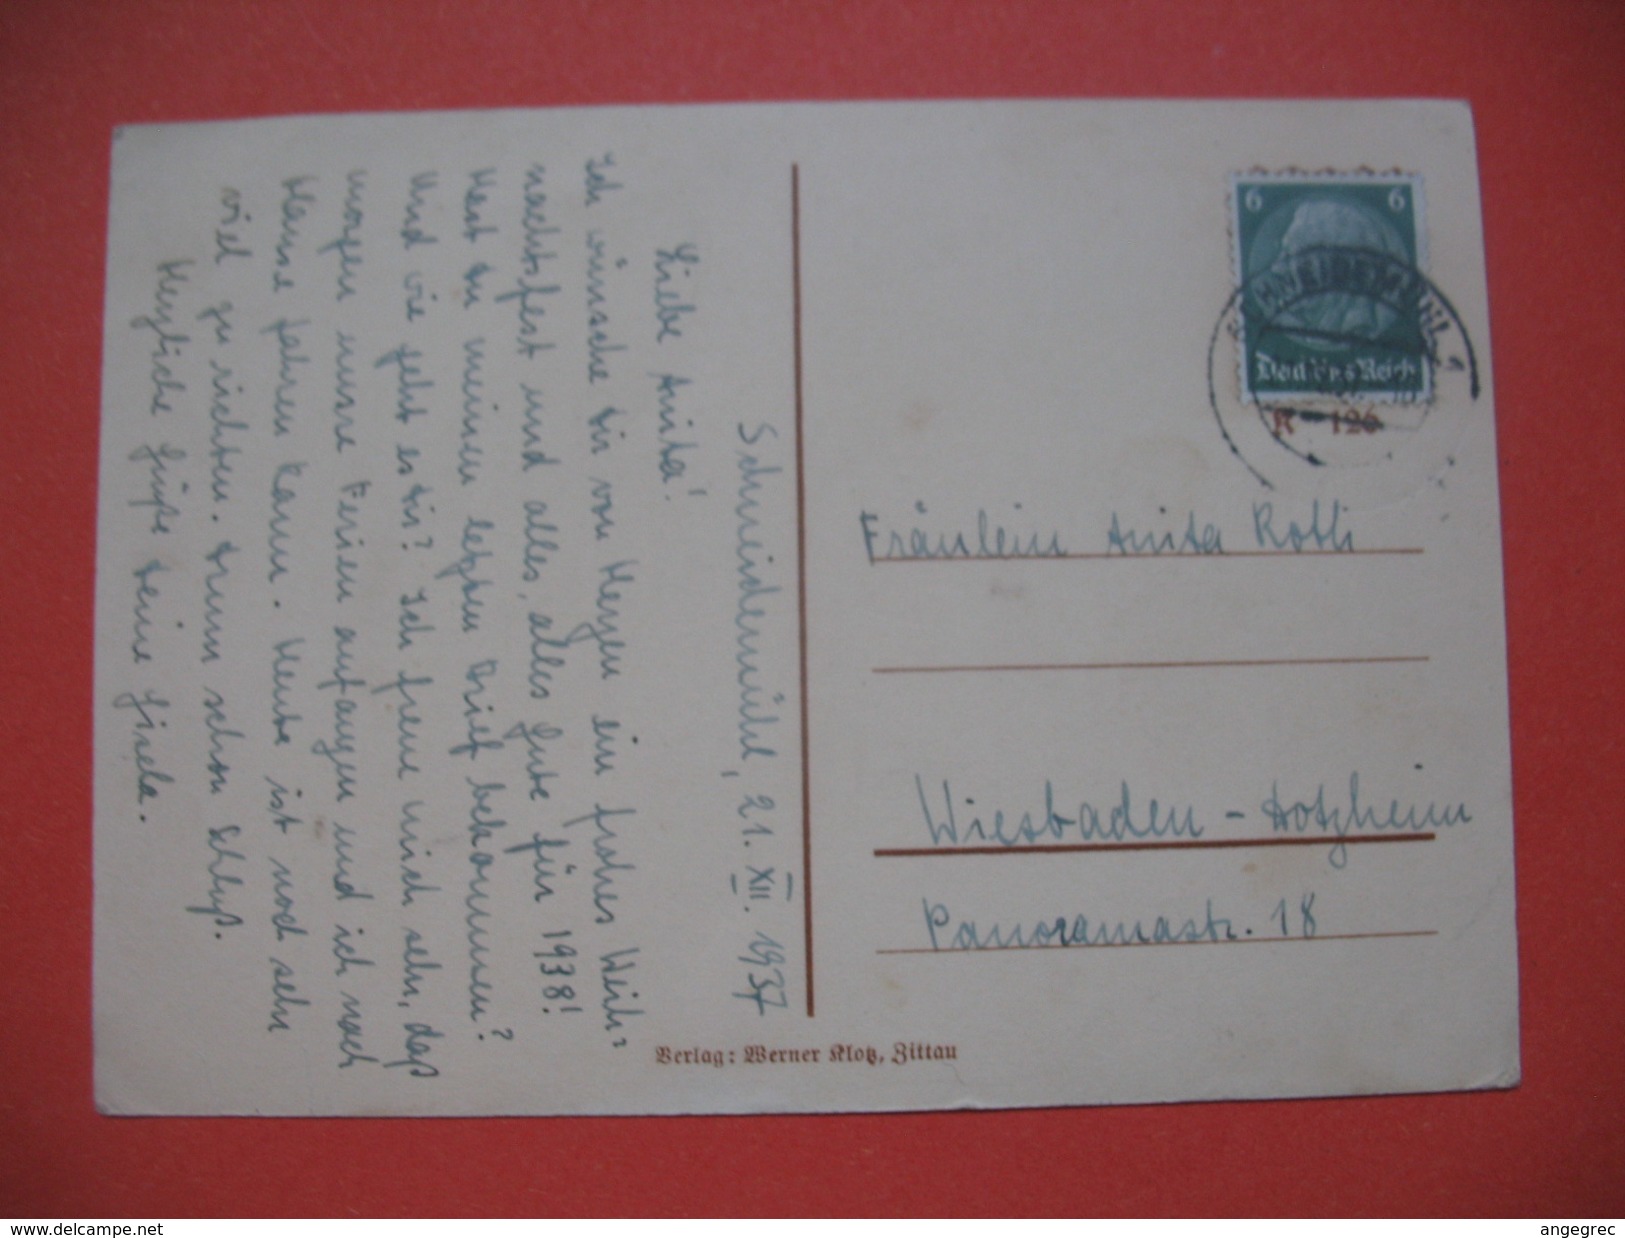 Schneidemühl, 21. XII. 1937
Liebe Anita!
Ich wünsche Dir von Herzen ein frohes Weih=
nachtsfest und alles, alles Gute für 1938!
Hast Du meinen letzten Brief bekommen?
Und wie geht es Dir? Ich freue mich sehr, daß
morgen unsre Ferien anfangen und ich nach
Hause fahren kann. Heute ist noch sehr
viel zu richten. Drum schon Schluß.
Herzliche Grüße Deine Gisela.
6 6
Deutsches Reich
SCHNEIDEMÜHL 1
K 126
Fräulein Anita Roth
Wiesbaden - Dotzheim
Panoramastr. 18
Verlag: Werner Klotz, Zittau
www.delcampe.net
angegrec